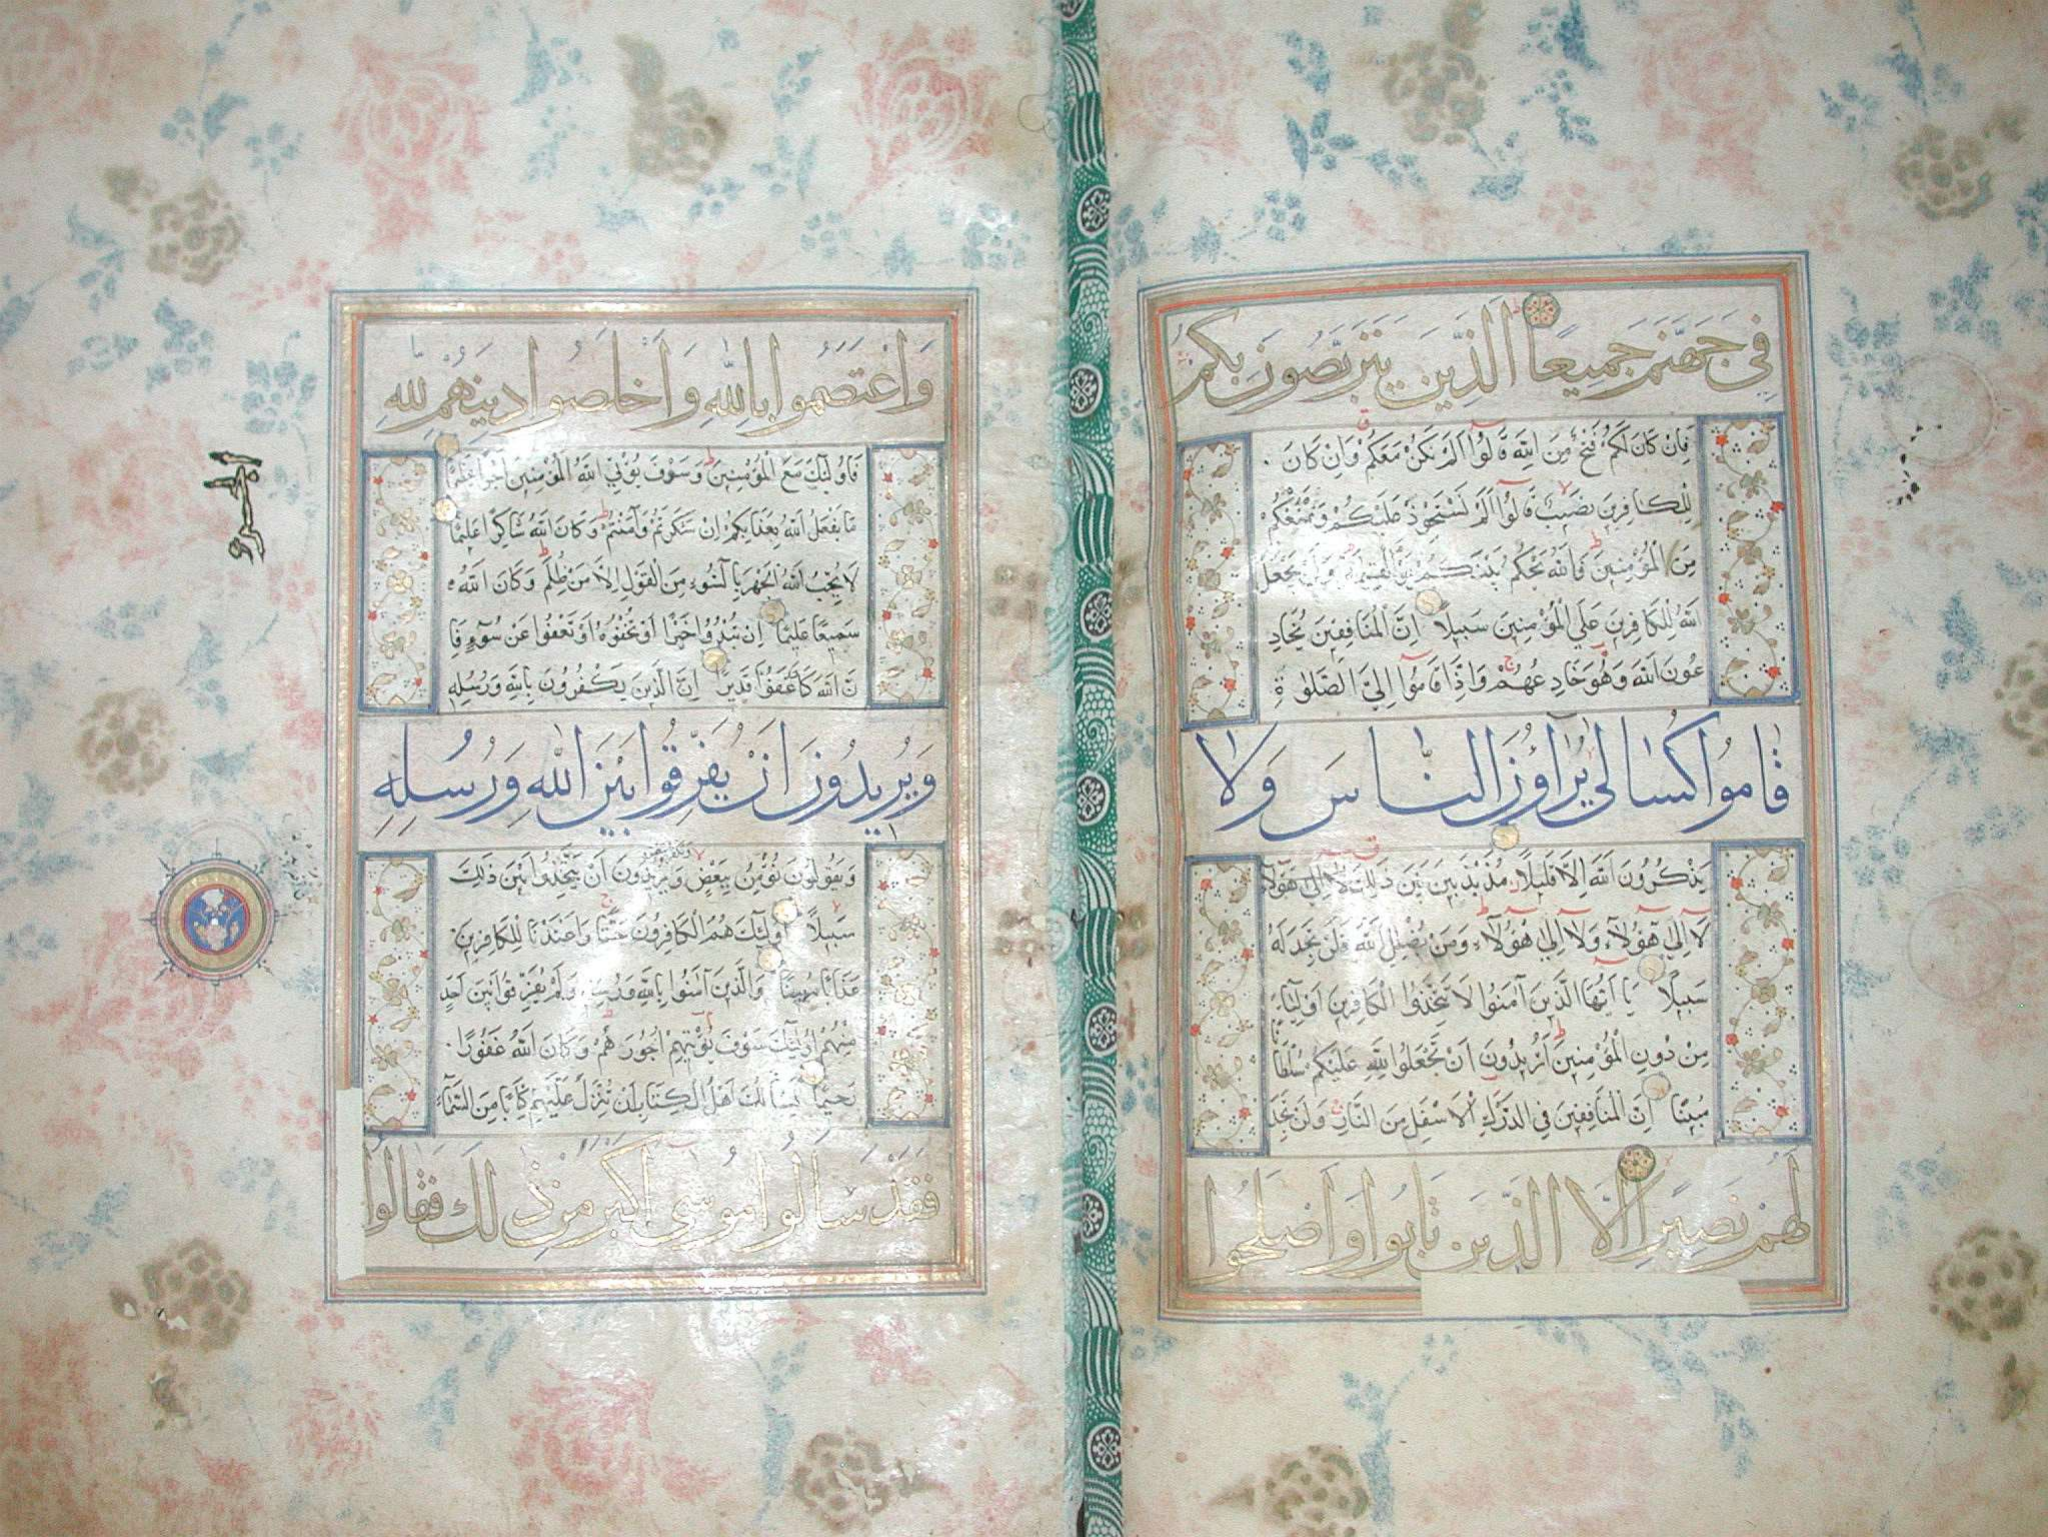 فِي جَهَنَّمَ جَمِيعًا الَّذِينَ يَتَرَبَّصُونَ بِكُمْ
فَاِنْ كَانَ لَكُمْ فَتْحٌ مِنَ اللهِ قَالُوا اَلَمْ نَكُنْ مَعَكُمْ وَاِنْ كَانَ
لِلْكَافِرِينَ نَصِيبٌ قَالُوا اَلَمْ نَسْتَحْوِذْ عَلَيْكُمْ وَنَمْنَعْكُمْ
مِنَ الْمُؤْمِنِينَ فَاللهُ يَحْكُمُ بَيْنَكُمْ يَوْمَ الْقِيمَةِ وَلَنْ يَجْعَلَ
اللهُ لِلْكَافِرِينَ عَلَي الْمُؤْمِنِينَ سَبِيلًا اِنَّ الْمُنَافِقِينَ يُخَادِ
عُونَ اللهَ وَهُوَ خَادِعُهُمْ وَاِذَا قَامُوا اِلَي الصَّلٰوةِ
قَامُوا كُسَالٰي يُرَآؤُنَ النَّاسَ وَلَا
يَذْكُرُونَ اللهَ اِلَّا قَلِيلًا مُذَبْذَبِينَ بَيْنَ ذَلِكَ لَا اِلٰي هٰؤُلَاءِ
لَا اِلٰي هٰؤُلَاءِ وَلَا اِلٰي هٰؤُلَاءِ وَمَنْ يُضْلِلِ اللهُ فَلَنْ تَجِدَ لَهُ
سَبِيلًا يَا اَيُّهَا الَّذِينَ آمَنُوا لَا تَتَّخِذُوا الْكَافِرِينَ اَوْلِيَاءَ
مِنْ دُونِ الْمُؤْمِنِينَ اَتُرِيدُونَ اَنْ تَجْعَلُوا لِلهِ عَلَيْكُمْ سُلْطَانًا
مُبِينًا اِنَّ الْمُنَافِقِينَ فِي الدَّرْكِ الْاَسْفَلِ مِنَ النَّارِ وَلَنْ تَجِدَ
لَهُمْ نَصِيرًا اِلَّا الَّذِينَ تَابُوا وَاَصْلَحُوا
وَاعْتَصَمُوا بِاللهِ وَاَخْلَصُوا دِينَهُمْ لِلهِ
فَاُولٰئِكَ مَعَ الْمُؤْمِنِينَ وَسَوْفَ يُؤْتِي اللهُ الْمُؤْمِنِينَ اَجْرًا عَظِيمًا
مَا يَفْعَلُ اللهُ بِعَذَابِكُمْ اِنْ شَكَرْتُمْ وَآمَنْتُمْ وَكَانَ اللهُ شَاكِرًا عَلِيمًا
لَا يُحِبُّ اللهُ الْجَهْرَ بِالسُّوءِ مِنَ الْقَوْلِ اِلَّا مَنْ ظُلِمَ وَكَانَ اللهُ
سَمِيعًا عَلِيمًا اِنْ تُبْدُوا خَيْرًا اَوْ تُخْفُوهُ اَوْ تَعْفُوا عَنْ سُوٓءٍ فَاِ
نَّ اللهَ كَانَ عَفُوًّا قَدِيرًا اِنَّ الَّذِينَ يَكْفُرُونَ بِاللهِ وَرُسُلِهِ
وَيُرِيدُونَ اَنْ يُفَرِّقُوا بَيْنَ اللهِ وَرُسُلِهِ
ونكفر ببعض
وَيَقُولُونَ نُؤْمِنُ بِبَعْضٍ وَيُرِيدُونَ اَنْ يَتَّخِذُوا بَيْنَ ذَلِكَ
سَبِيلًا اُولٰئِكَ هُمُ الْكَافِرُونَ حَقًّا وَاَعْتَدْنَا لِلْكَافِرِينَ
عَذَابًا مُهِينًا وَالَّذِينَ آمَنُوا بِاللهِ وَرُسُلِهِ وَلَمْ يُفَرِّقُوا بَيْنَ اَحَدٍ
مِنْهُمْ اُولٰئِكَ سَوْفَ يُؤْتِيهِمْ اُجُورَهُمْ وَكَانَ اللهُ غَفُورًا
رَحِيمًا يَسْاَلُكَ اَهْلُ الْكِتَابِ اَنْ تُنَزِّلَ عَلَيْهِمْ كِتَابًا مِنَ السَّمَاءِ
فَقَدْ سَاَلُوا مُوسٰي اَكْبَرَ مِنْ ذٰلِكَ فَقَالُوا